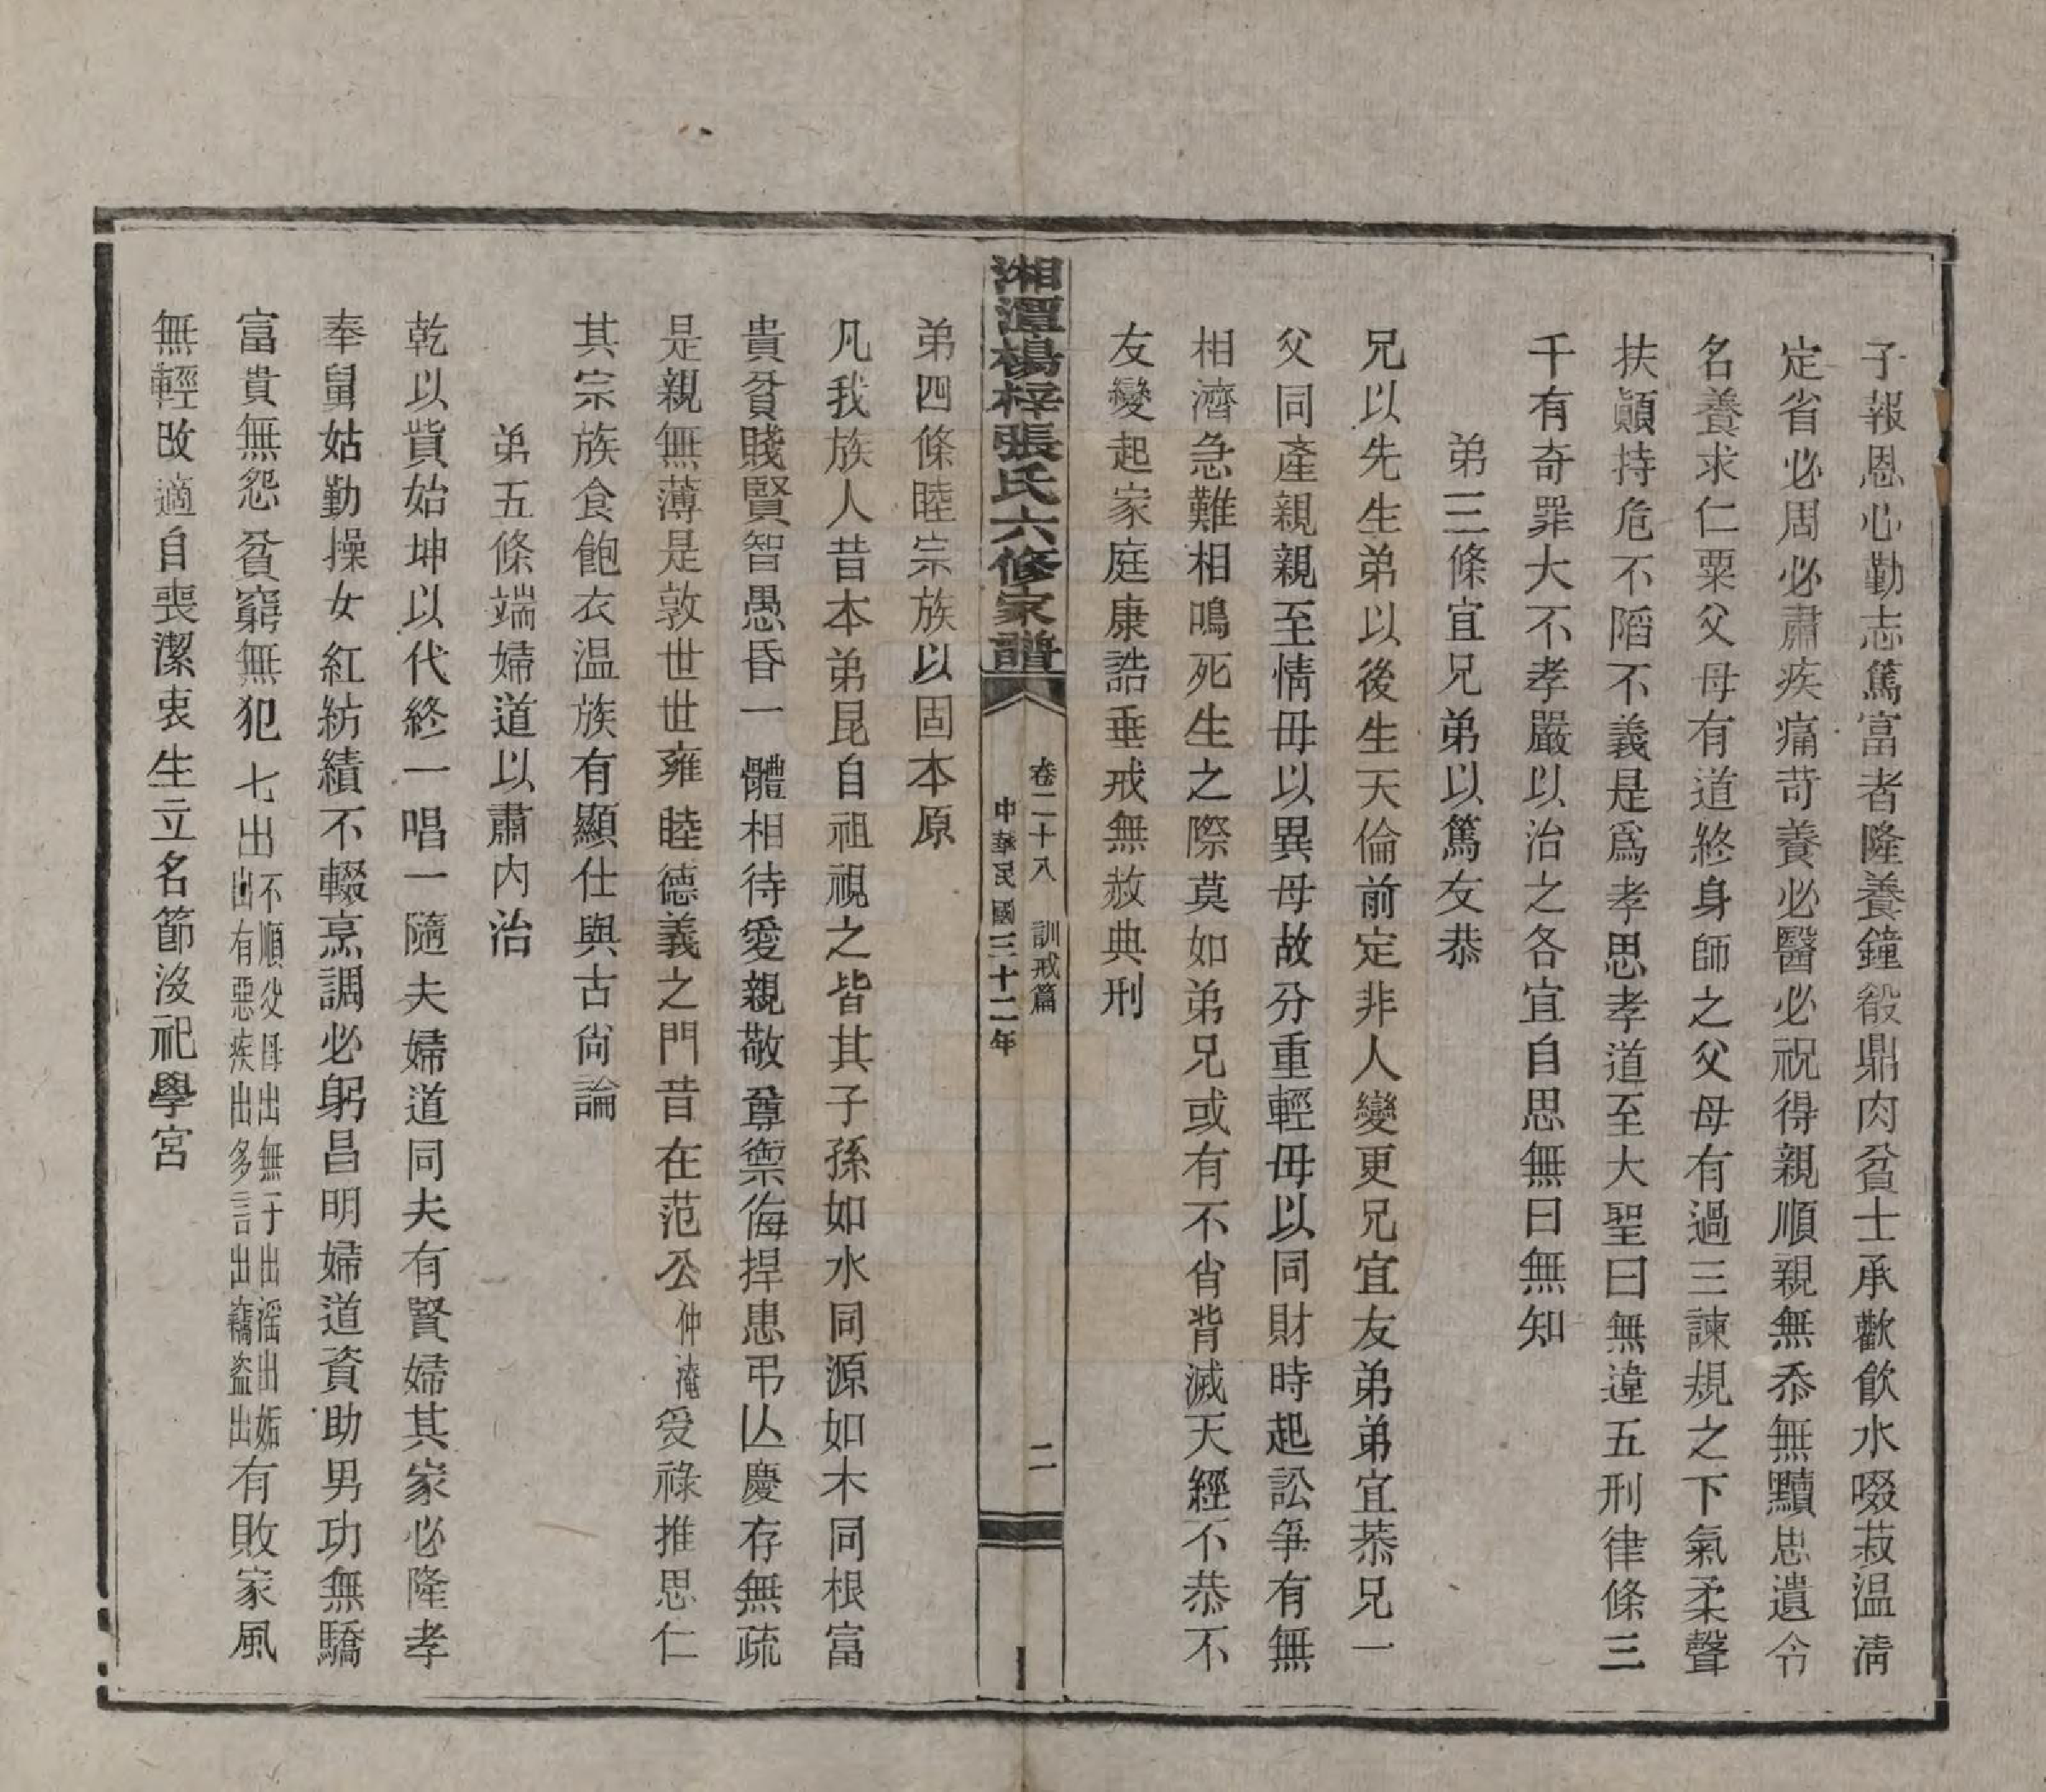 子報恩心勤志篤富者隆養鐘殽鼎肉貧士承歡飲水啜菽温凊
定省必周必肅疾痛苛養必醫必祝得親順親無忝無黷思遺令
名養求仁粟父母有道終身師之父母有過三諫規之下氣柔聲
扶顚持危不陷不義是爲孝思孝道至大聖曰無違五刑律條三
千有奇罪大不孝嚴以治之各宜自思無曰無知
弟三條宜兄弟以篤友恭
兄以先生弟以後生天倫前定非人變更兄宜友弟弟宜恭兄一
父同產親親至情毋以異母故分重輕毋以同財時起訟爭有無
相濟急難相鳴死生之際莫如弟兄或有不肖背滅天經不恭不
友變起家庭康誥垂戒無赦典刑
湘潭楊梓張氏六修家譜
卷二十八 訓戒篇 二
中華民國三十二年
弟四條睦宗族以固本原
凡我族人昔本弟昆自祖視之皆其子孫如水同源如木同根富
貴貧賤賢智愚昏一體相待愛親敬尊禦侮捍患弔亾慶存無疏
是親無薄是敦世世雍睦德義之門昔在范公仲淹受祿推思仁
其宗族食飽衣温族有顯仕與古尙論
弟五條端婦道以肅內治
乾以貲始坤以代終一唱一隨夫婦道同夫有賢婦其家必隆孝
奉舅姑勤操女紅紡績不輟烹調必躬昌明婦道資助男功無驕
富貴無怨貧窮無犯七出不順父母出無子出淫出妬出有惡疾出多言出竊盜出有敗家風
無輕改適自喪潔衷生立名節沒祀學宮